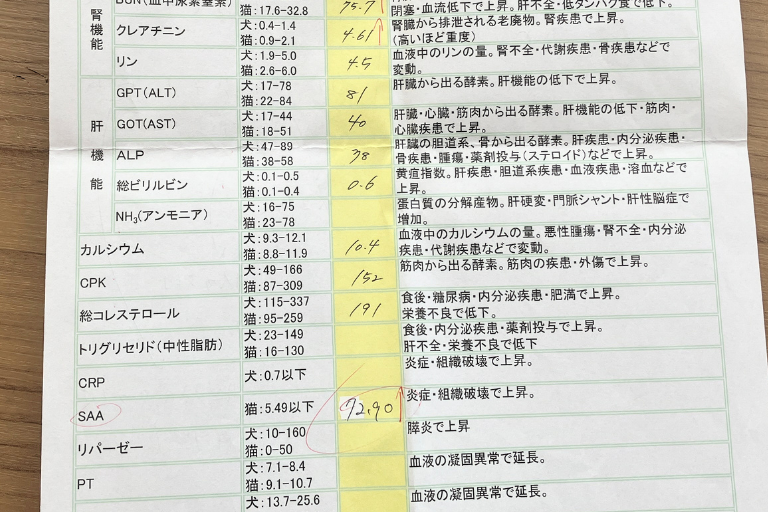 BUN(血中尿素窒素)
猫:17.6-32.8
75.7
閉塞・血流低下で上昇。肝不全・低タンパク食で低下。
腎機能
クレアチニン
犬:0.4-1.4
猫:0.9-2.1
4.61↑
腎臓から排泄される老廃物。腎疾患で上昇。
(高いほど重度)
リン
犬:1.9-5.0
猫:2.6-6.0
4.5
血液中のリンの量。腎不全・代謝疾患・骨疾患などで
変動。
肝機能
GPT(ALT)
犬:17-78
猫:22-84
81
肝臓から出る酵素。肝機能の低下で上昇。
GOT(AST)
犬:17-44
猫:18-51
40
肝臓・心臓・筋肉から出る酵素。肝機能の低下・筋肉・
心臓疾患で上昇。
ALP
犬:47-89
猫:38-58
38
肝臓の胆道系、骨から出る酵素。肝疾患・内分泌疾患・
骨疾患・腫瘍・薬剤投与(ステロイド)などで上昇。
総ビリルビン
犬:0.1-0.5
猫:0.1-0.4
0.6
黄疸指数。肝疾患・胆道系疾患・血液疾患・溶血などで
上昇。
NH3(アンモニア)
犬:16-75
猫:23-78
蛋白質の分解産物。肝硬変・門脈シャント・肝性脳症で
増加。
カルシウム
犬:9.3-12.1
猫:8.8-11.9
10.4
血液中のカルシウムの量。悪性腫瘍・腎不全・内分泌
疾患・代謝疾患などで変動。
CPK
犬:49-166
猫:87-309
152
筋肉から出る酵素。筋肉の疾患・外傷で上昇。
総コレステロール
犬:115-337
猫:95-259
191
食後・糖尿病・内分泌疾患・肥満で上昇。
栄養不良で低下。
トリグリセリド(中性脂肪)
犬:23-149
猫:16-130
食後・内分泌疾患・薬剤投与で上昇。
肝不全・栄養不良で低下
CRP
犬:0.7以下
炎症・組織破壊で上昇。
SAA
猫:5.49以下
72.90↑
炎症・組織破壊で上昇。
リパーゼー
犬:10-160
猫:0-50
膵炎で上昇
PT
犬:7.1-8.4
猫:9.1-10.7
血液の凝固異常で延長。
犬:13.7-25.6
血液の凝固異常で延長。